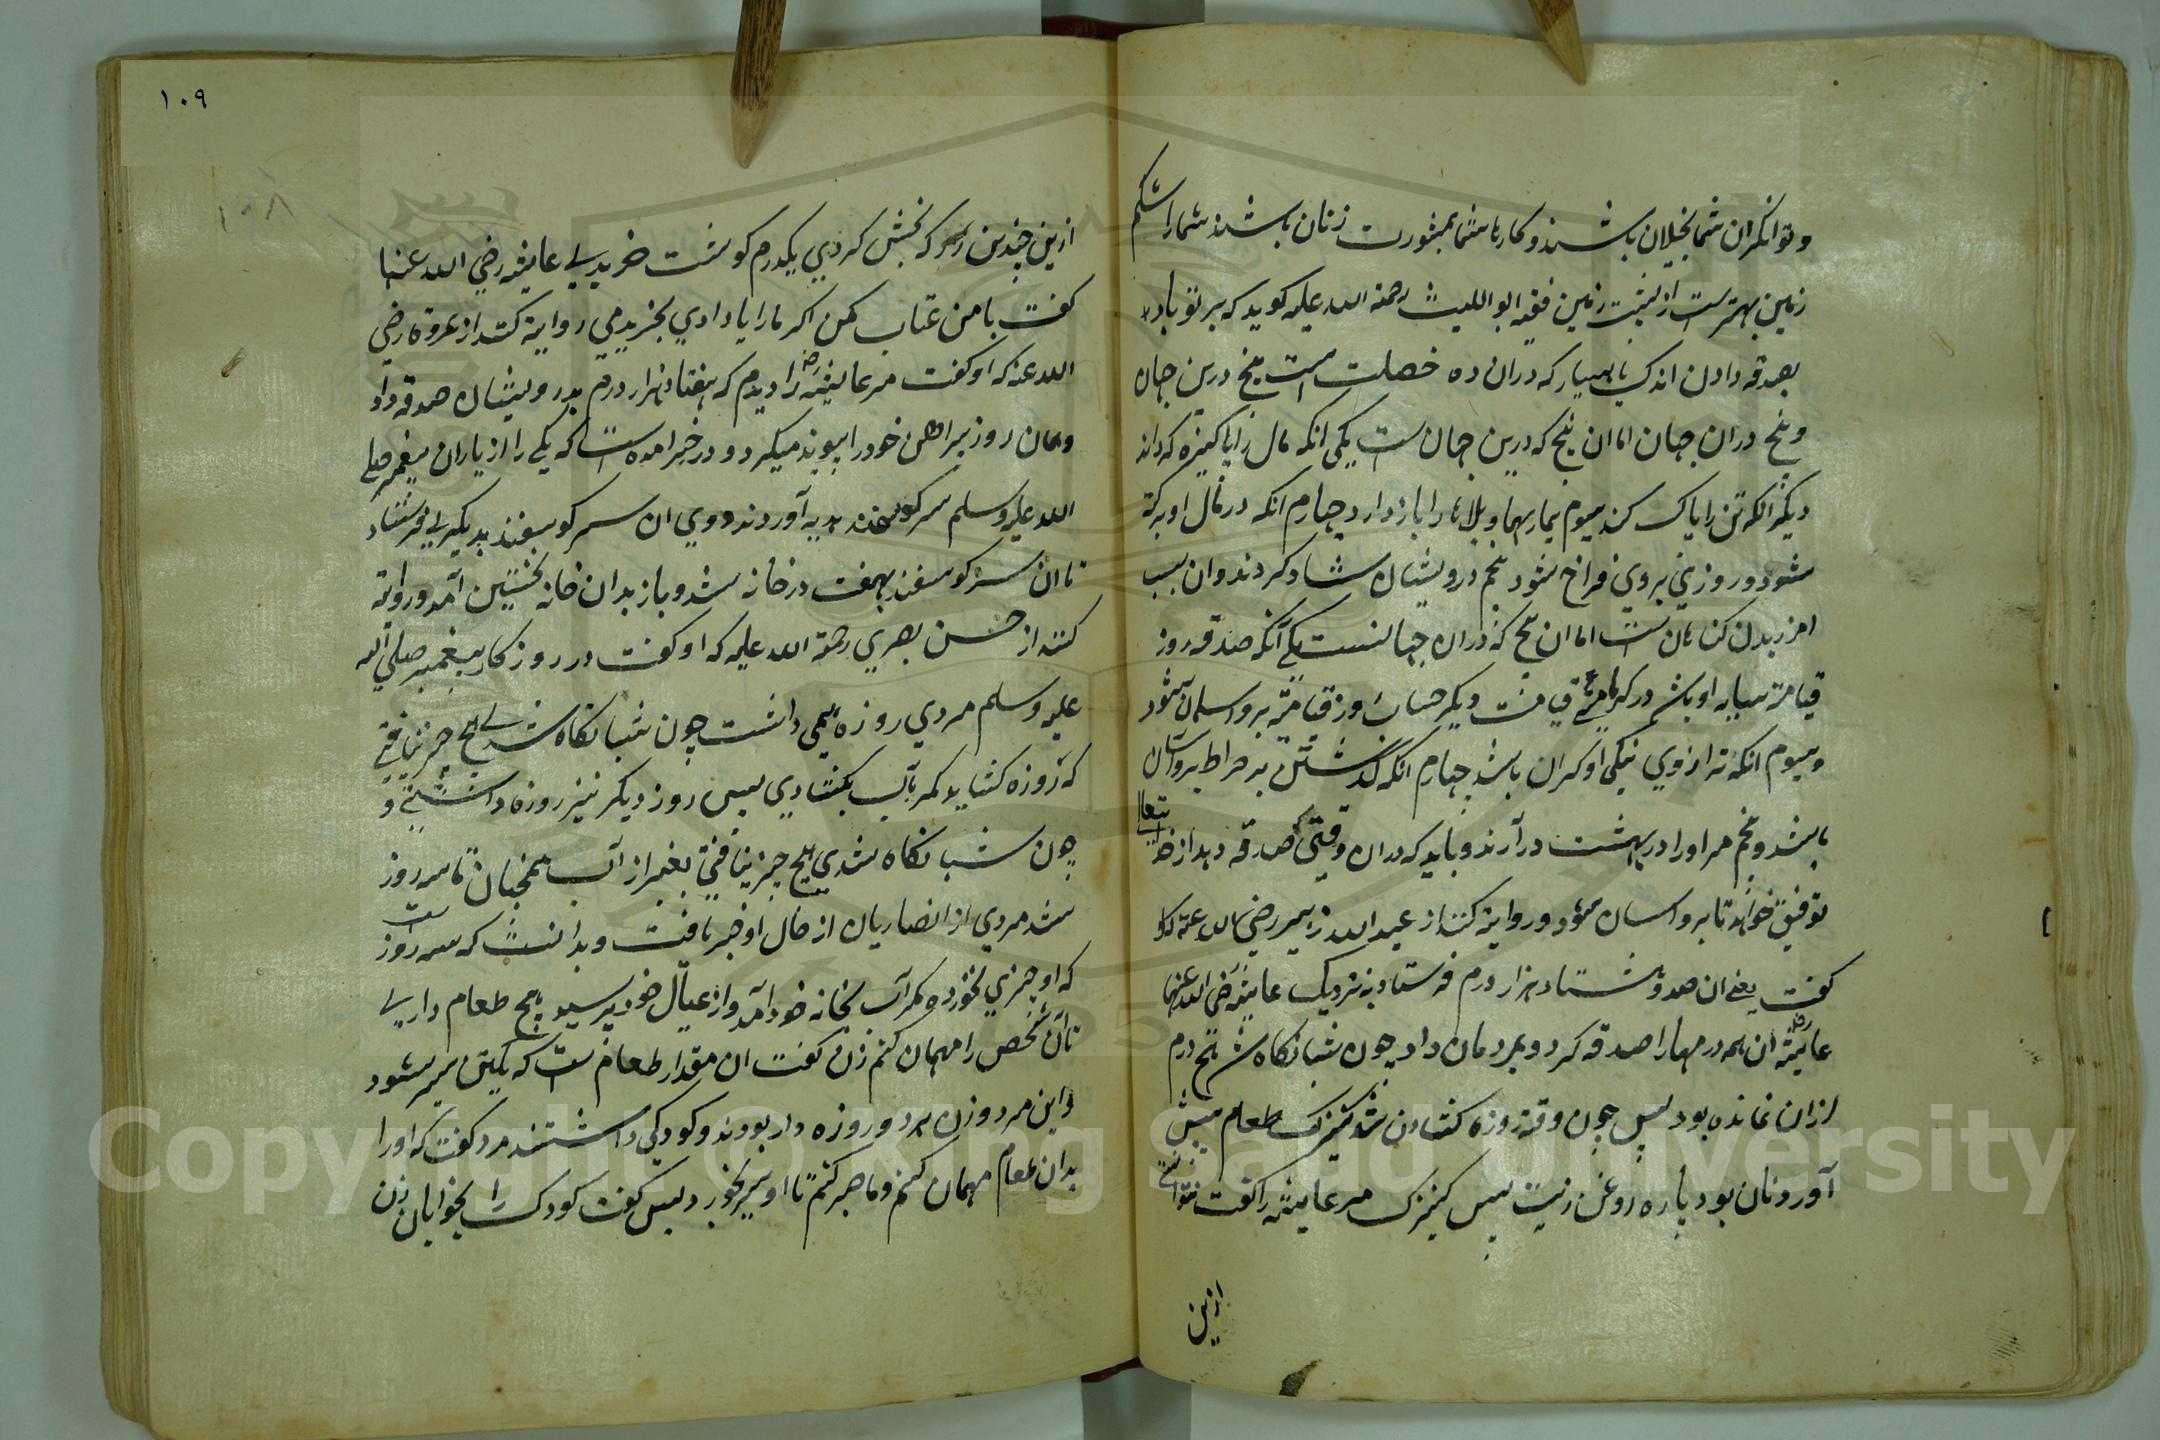 وتوانگران شما بخیلان باشند و کارها شما بمشورت زنان باشند شما را شکم
زمین بهترست از پشت زمین فقیه ابو اللیث رحمة الله علیه کوید که بر تو باد
بصدقه دادن اندک یا بسیار که دران ده خصلت است پنج درین جهان
و پنج دران جهان اما ان پنج که درین جهان ست یکی انکه مال را پاکیزه کرداند
دیکر انکه تن را پاک کند سیوم بیماریها و بلاها را باز دارد چهارم انکه در مال او برکة
شود و روزي بروي فراخ شود پنجم درویشان شاد کردند وان سبب
امرزیدن کناهان ست اما ان پنج که دران جهانست یکی آنکه صدقه روز
قیامة سایه او باشد در کرماء قیامت دیکر حساب روز قیامة برو اسان شود
وسیوم انکه ترازوي نیکي او کران باشد چهارم انکه گذشتن بر صراط برو آسان
باشد و پنجم مر اورا در بهشت درآرند و باید که دران وقتی که صدقه دهد از خداي تعالی
توفیق خواهد تا برو اسان شود و روایة کنند از عبد الله زبیر رضي الله عنه که او
کفت یعني ان صد و هشتاد هزار درم فرستاد بنزدیک عایشه رضي الله عنها
عایشه ان همه درمها را صدقه کرد و بمردمان داد چون شبانکاه شد هیچ درم
ازان نمانده بود پس چون وقت روزه کشادن شد کنیزک طعام پیش
آورد نان بود پاره روغن زیت پس کنیزک مر عایشه را کفت نتوانستي
ازین
۱۰۹
۱۰۸
ازین چندین زر که بخش کردي یکدرم کوشت خریدیي عایشه رضي الله عنها
کفت با من عتاب مکن اکر مارا یاد دادي بخریدمي روایة کنند از عروة رضي
الله عنه که او کفت مر عایشه را دیدم که هفتاد هزار درم بدرویشان صدقه داد
وهمان روز پیراهن خود را پیوند میکرد و در خبر امده ست که یکي را از یاران پیغمبر صلي
الله علیه وسلم سر کوسفند بهدیه آوردند و وي ان سر کوسفند بدیکري فرستاد
تا ان سر کوسفند بهفت در خانه شد و باز بدان خانه نخستین آمد و روایة
کنند از حسن بصري رحمة الله علیه که او کفت در روز کار پیغمبر صلي الله
علیه وسلم مردي روزه همي داشت چون شبانکاه شدي هیچ چیز نیافتي
که روزه کشاید مکر بآب بکشادي پس روز دیکر نیز روزه داشتي و
چون شبانکاه شدي هیچ چیز نیافتي بغیر از آب همچنان تا سه روز
شد مردي از انصاریان از حال او خبر یافت و بدانست که سه روز ست
که او چیزي نخورده مکر آب بخانه خود آمد و از عیال خود پرسید هیچ طعام داریي
تا آن شخص را مهمان کنم زن کفت ان مقدار طعام ست که یک تن سیر شود
و این مرد و زن هر دو روزه دار بودند و کودکي داشتند مرد کفت که اورا
بدان طعام مهمان کنیم و ما صبر کنیم تا او سیر بخورد پس کفت کودک را بخوابان زن
Copyright © King Saud University